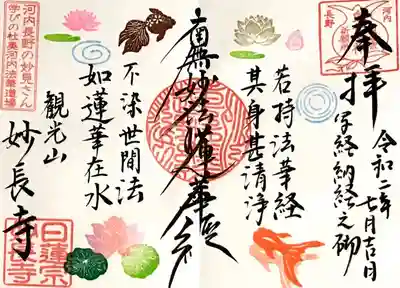 奉拝
令和二年七月吉日
写経納経之砌
若持法華経
其身甚清浄
南無妙法蓮華経
不染世間法
如蓮華在水
観光山
妙長寺
河内長野の妙見さん
学びの杜奥河内法華道場
河内
長野
祈願
日蓮宗
妙長寺